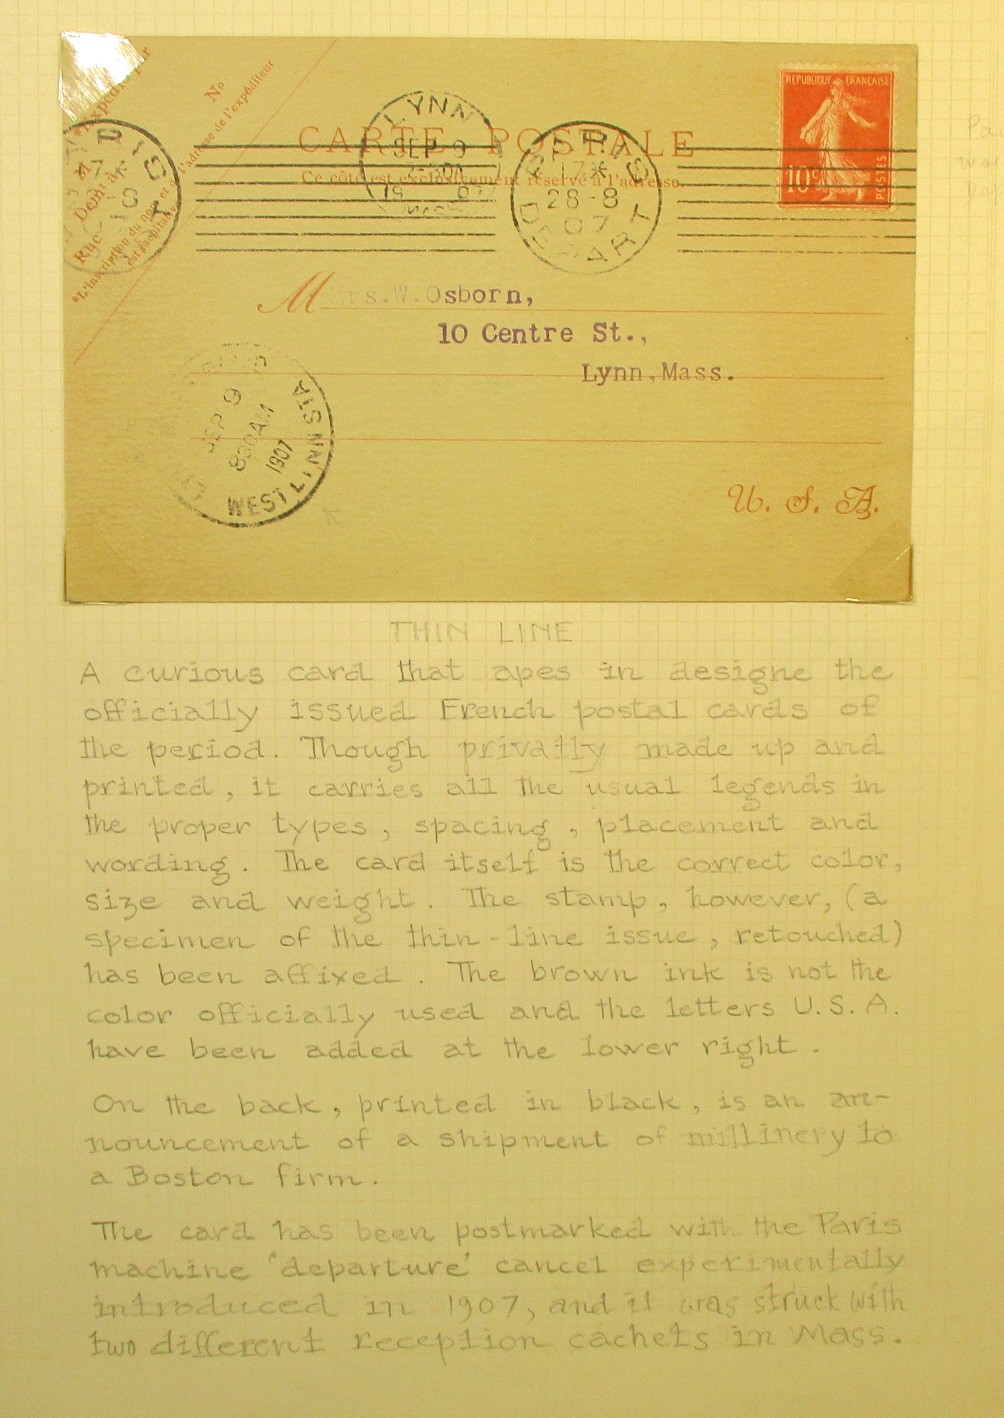 *Expédié par
No
M
Demt à
Rue
*L'inscription du nom et de l'adresse de l'expéditeur
est facultative.
PARIS
17-*
-8
LYNN
SEP 9
19 07
MASS.
CARTE POSTALE
Ce côté est exclusivement réservé à l'adresse.
PARIS
17-*
28-8
07
DEPART
REPUBLIQUE FRANÇAISE
10c
POSTES
M Mrs.W.Osborn,
10 Centre St.,
Lynn,Mass.
SEP 9
830AM
1907
WEST LYNN STA
U. S. A.
THIN LINE
A curious card that apes in designe the
officially issued French postal cards of
the period. Though privatly made up and
printed, it carries all the usual legends in
the proper types, spacing, placement and
wording. The card itself is the correct color,
size and weight. The stamp, however, (a
specimen of the thin-line issue, retouched)
has been affixed. The brown ink is not the
color officially used and the letters U.S.A.
have been added at the lower right.
On the back, printed in black, is an an-
nouncement of a shipment of millinery to
a Boston firm.
The card has been postmarked with the Paris
machine "departure" cancel experimentally
introduced in 1907, and it was struck with
two different reception cachets in Mass.